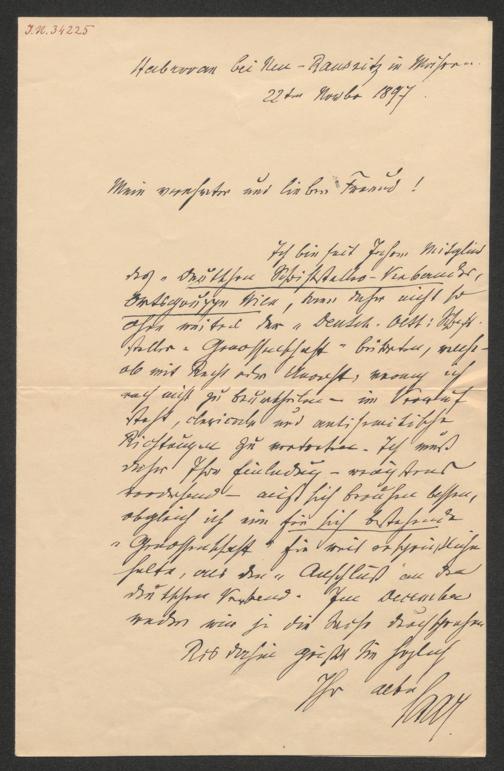 J.N. 34225
Habrovan bei Neu-Raussnitz in Mähren
22ten Novbr 1897.
Mein verehrter und lieber Freund!
Ich bin seit Jahren Mitglied
des „Deutschen Schriftsteller-Verbandes,
Ortsgruppe Wien, kann daher nicht so
ohne weiters der „Deutsch-Oest: Schrift-
steller-Genossenschaft" beitreten, welche –
ob mit Recht oder Unrecht, vermag ich
noch nicht zu beurtheilen – im Verrufe
steht, clericale und antisemitische
Richtungen zu vertreten. Ich muß
daher Ihre Einladung – wenigstens
vorderhand – auf sich beruhen lassen,
obgleich ich eine für sich bestehende
„Genossenschaft" für weit ersprießlicher
halte, als den „Anschluß" an den
deutschen Verband. Im December
werden wir ja die Sache durchsprechen
Bis dahin grüßt Sie herzlich
Ihr alter
Saar.